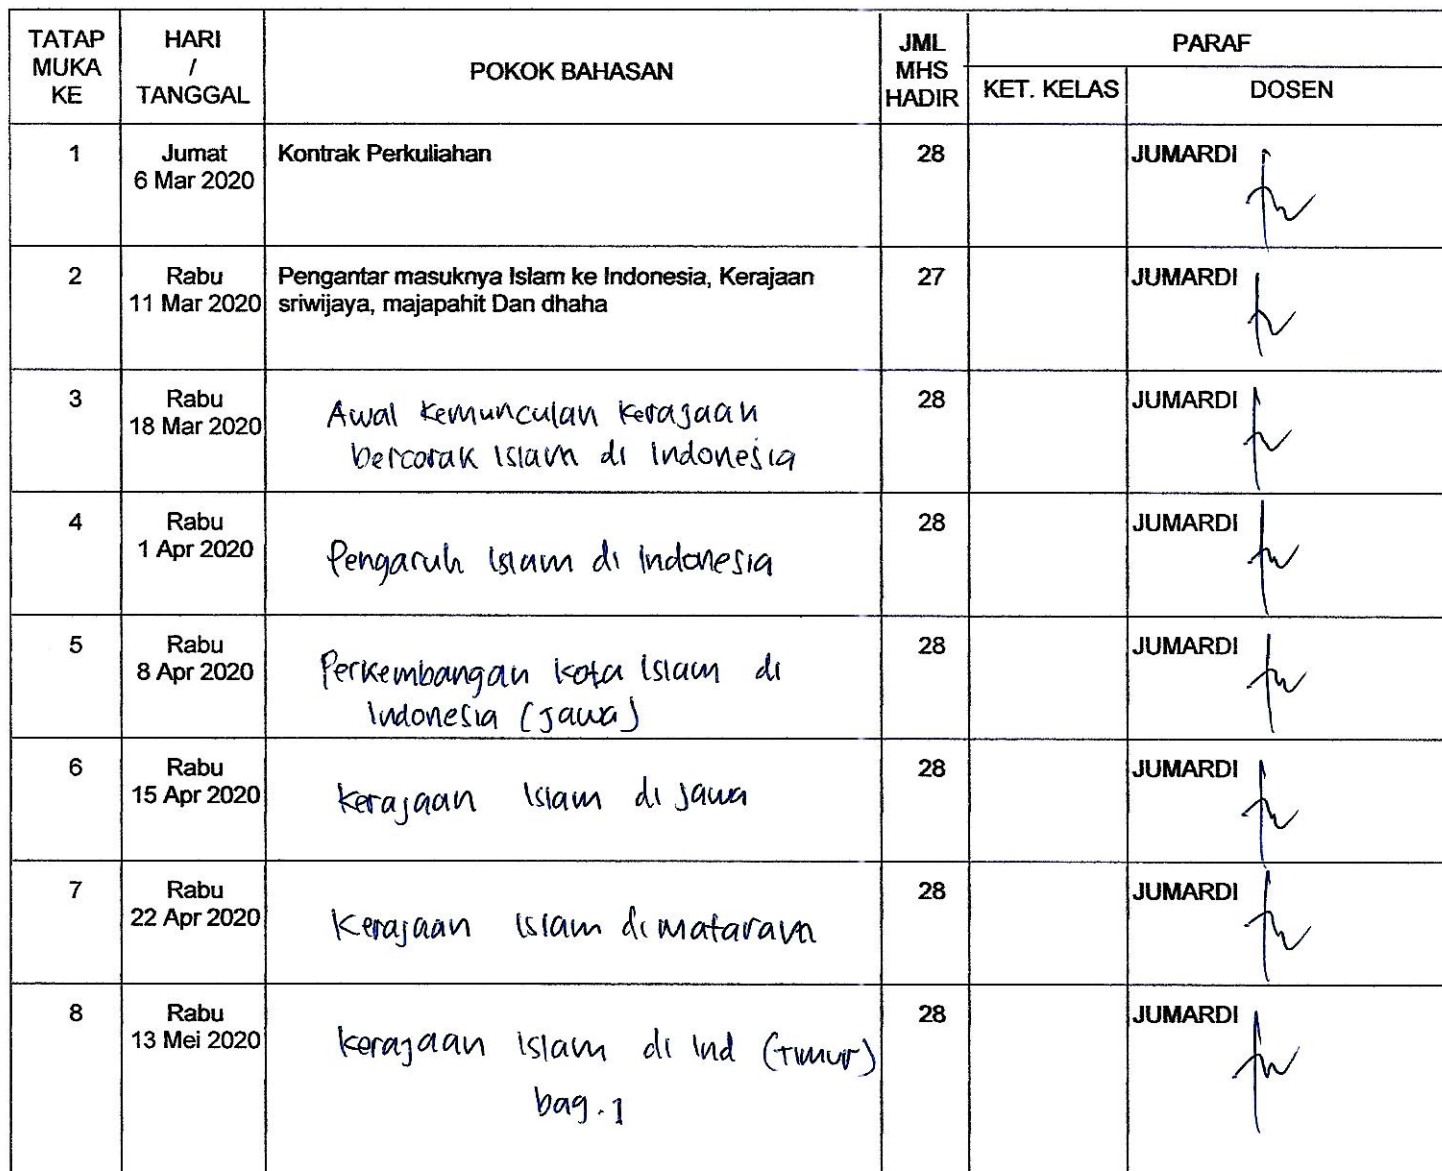 TATAP MUKA KE
HARI / TANGGAL
POKOK BAHASAN
JML MHS HADIR
PARAF
KET. KELAS
DOSEN
1
Jumat
6 Mar 2020
Kontrak Perkuliahan
28
JUMARDI
2
Rabu
11 Mar 2020
Pengantar masuknya Islam ke Indonesia, Kerajaan
sriwijaya, majapahit Dan dhaha
27
JUMARDI
3
Rabu
18 Mar 2020
Awal Kemunculan Kerajaan
bercorak Islam di Indonesia
28
JUMARDI
4
Rabu
1 Apr 2020
Pengaruh Islam di Indonesia
28
JUMARDI
5
Rabu
8 Apr 2020
Perkembangan kota Islam di
Indonesia (Jawa)
28
JUMARDI
6
Rabu
15 Apr 2020
Kerajaan Islam di Jawa
28
JUMARDI
7
Rabu
22 Apr 2020
Kerajaan Islam di mataram
28
JUMARDI
8
Rabu
13 Mei 2020
Kerajaan Islam di Ind (Timur)
bag. 1
28
JUMARDI